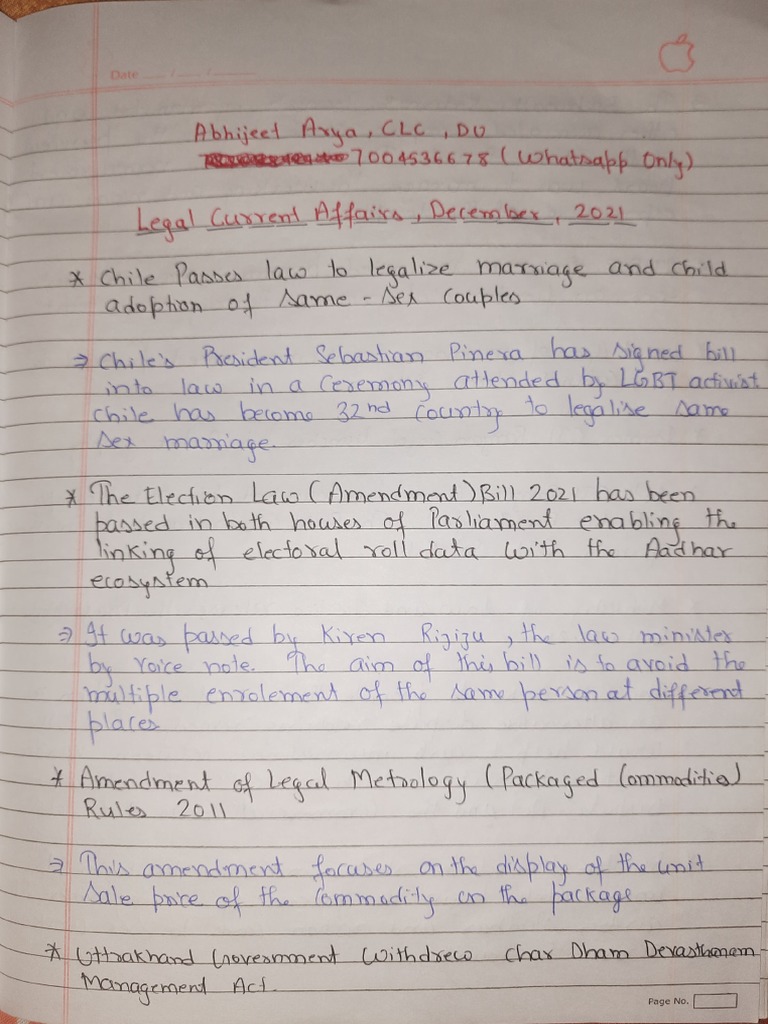 Date ___/___/___
Abhijeet Arya, CLC, DU
7004536678 (Whatsapp Only)
Legal Current Affairs, December, 2021
* Chile Passes law to legalize marriage and child
adoption of same-sex couples
⇒ Chile's President Sebastian Pinera has signed bill
into law in a ceremony attended by LGBT activist
Chile has become 32nd Country to legalise same
sex marriage.
* The Election Law (Amendment) Bill 2021 has been
passed in both houses of Parliament enabling the
linking of electoral roll data with the Aadhar
ecosystem
⇒ It was passed by Kiren Rijiju, the law minister
by voice note. The aim of this bill is to avoid the
multiple enrolement of the same person at different
places
* Amendment of Legal Metrology (Packaged Commodities)
Rules 2011
⇒ This amendment focuses on the display of the unit
sale price of the commodity on the package
* Uttrakhand Government withdrew Char Dham Devasthanam
Management Act.
Page No.